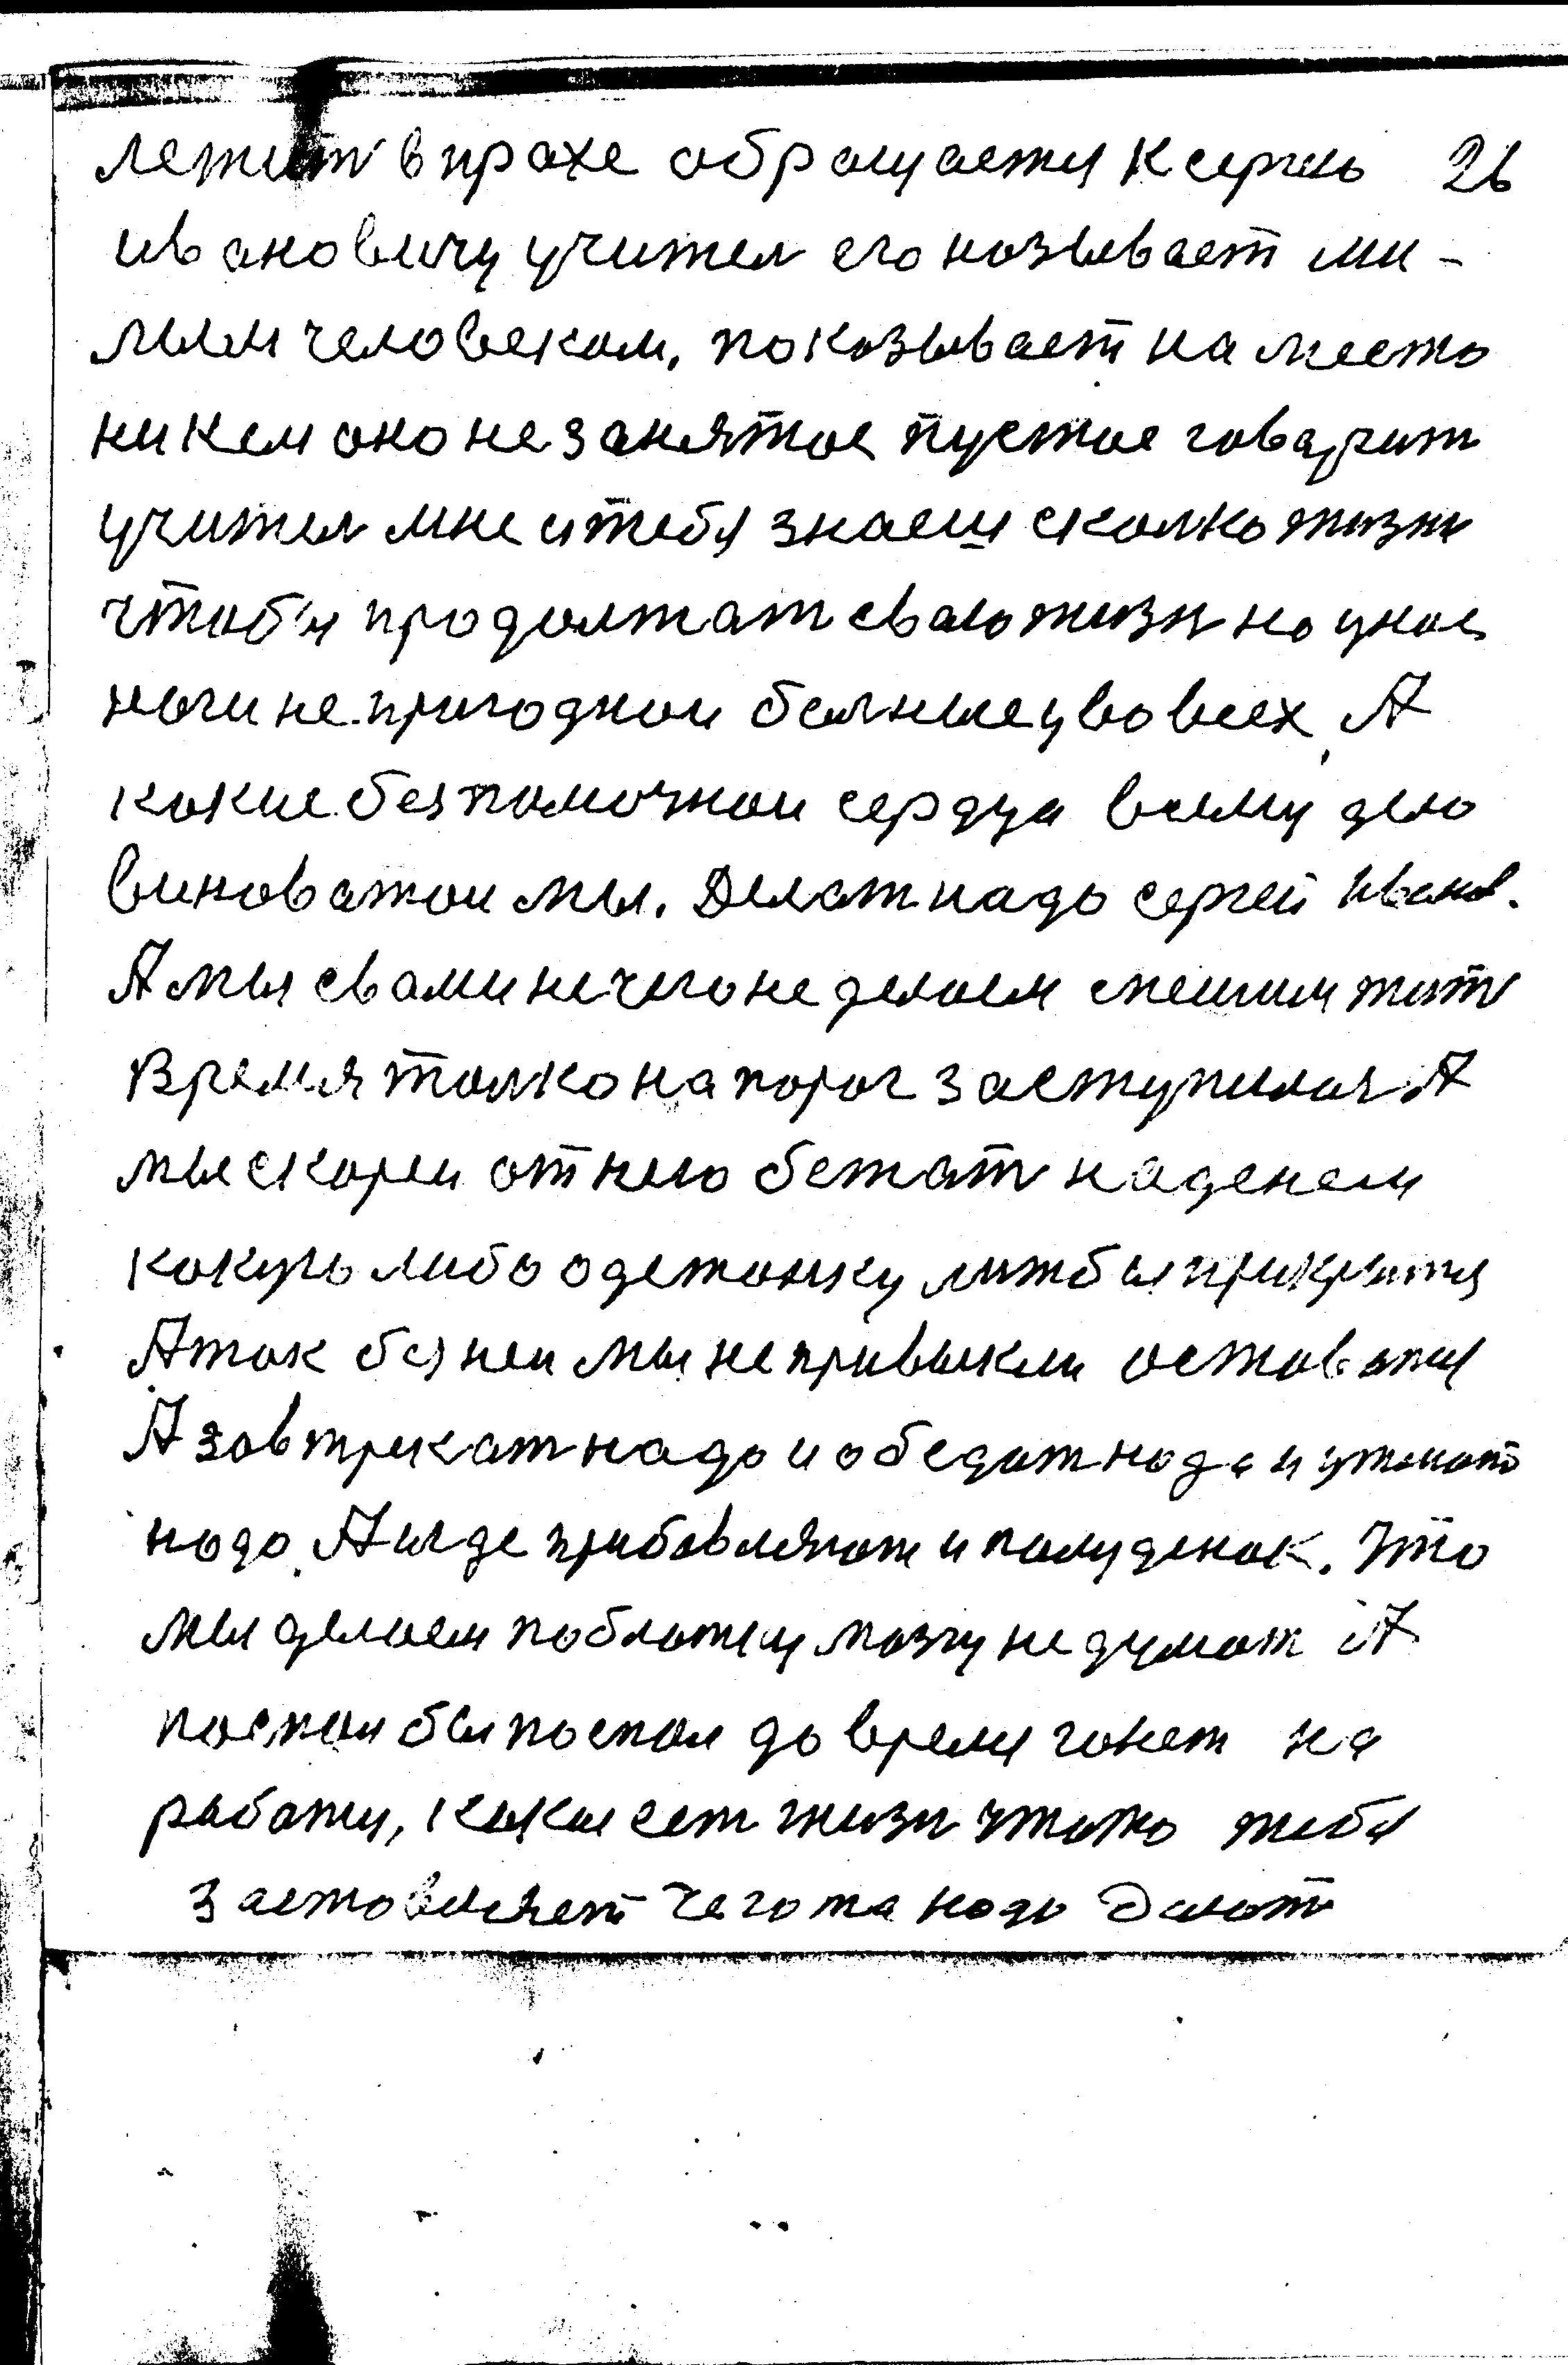 лежит в прахе обращается к сергею 26
ивановичу учител его называет ми-
лым человеком, показывает на место
никем оно не занятое пустое говарит
учител мне и тебя знаеш сколко жизни
чтобы продолжат сваю жизн но у нас
ноги не пригоднои болние у во всех, А
какие безпомочнои сердца всему делу
виноватои мы. Делат надо сергей Иванов.
А мы с вами нечего не делаем спешим жит
Время толко на порог заступилоя А
мы скореи от него бежат наденем
какую либо одежонку лижбы прикрытя
А так без неи мы не привыкли оставатя
А завтрикат надо и обедат надо и ужинат
надо, А игде прибавляют и полуденок. Что
мы делаем по блажи у мозгу не думат А
поспал бы поспал до время гонет на
работу, какая ест жизн что то тебя
заставляет чего та надо Делат